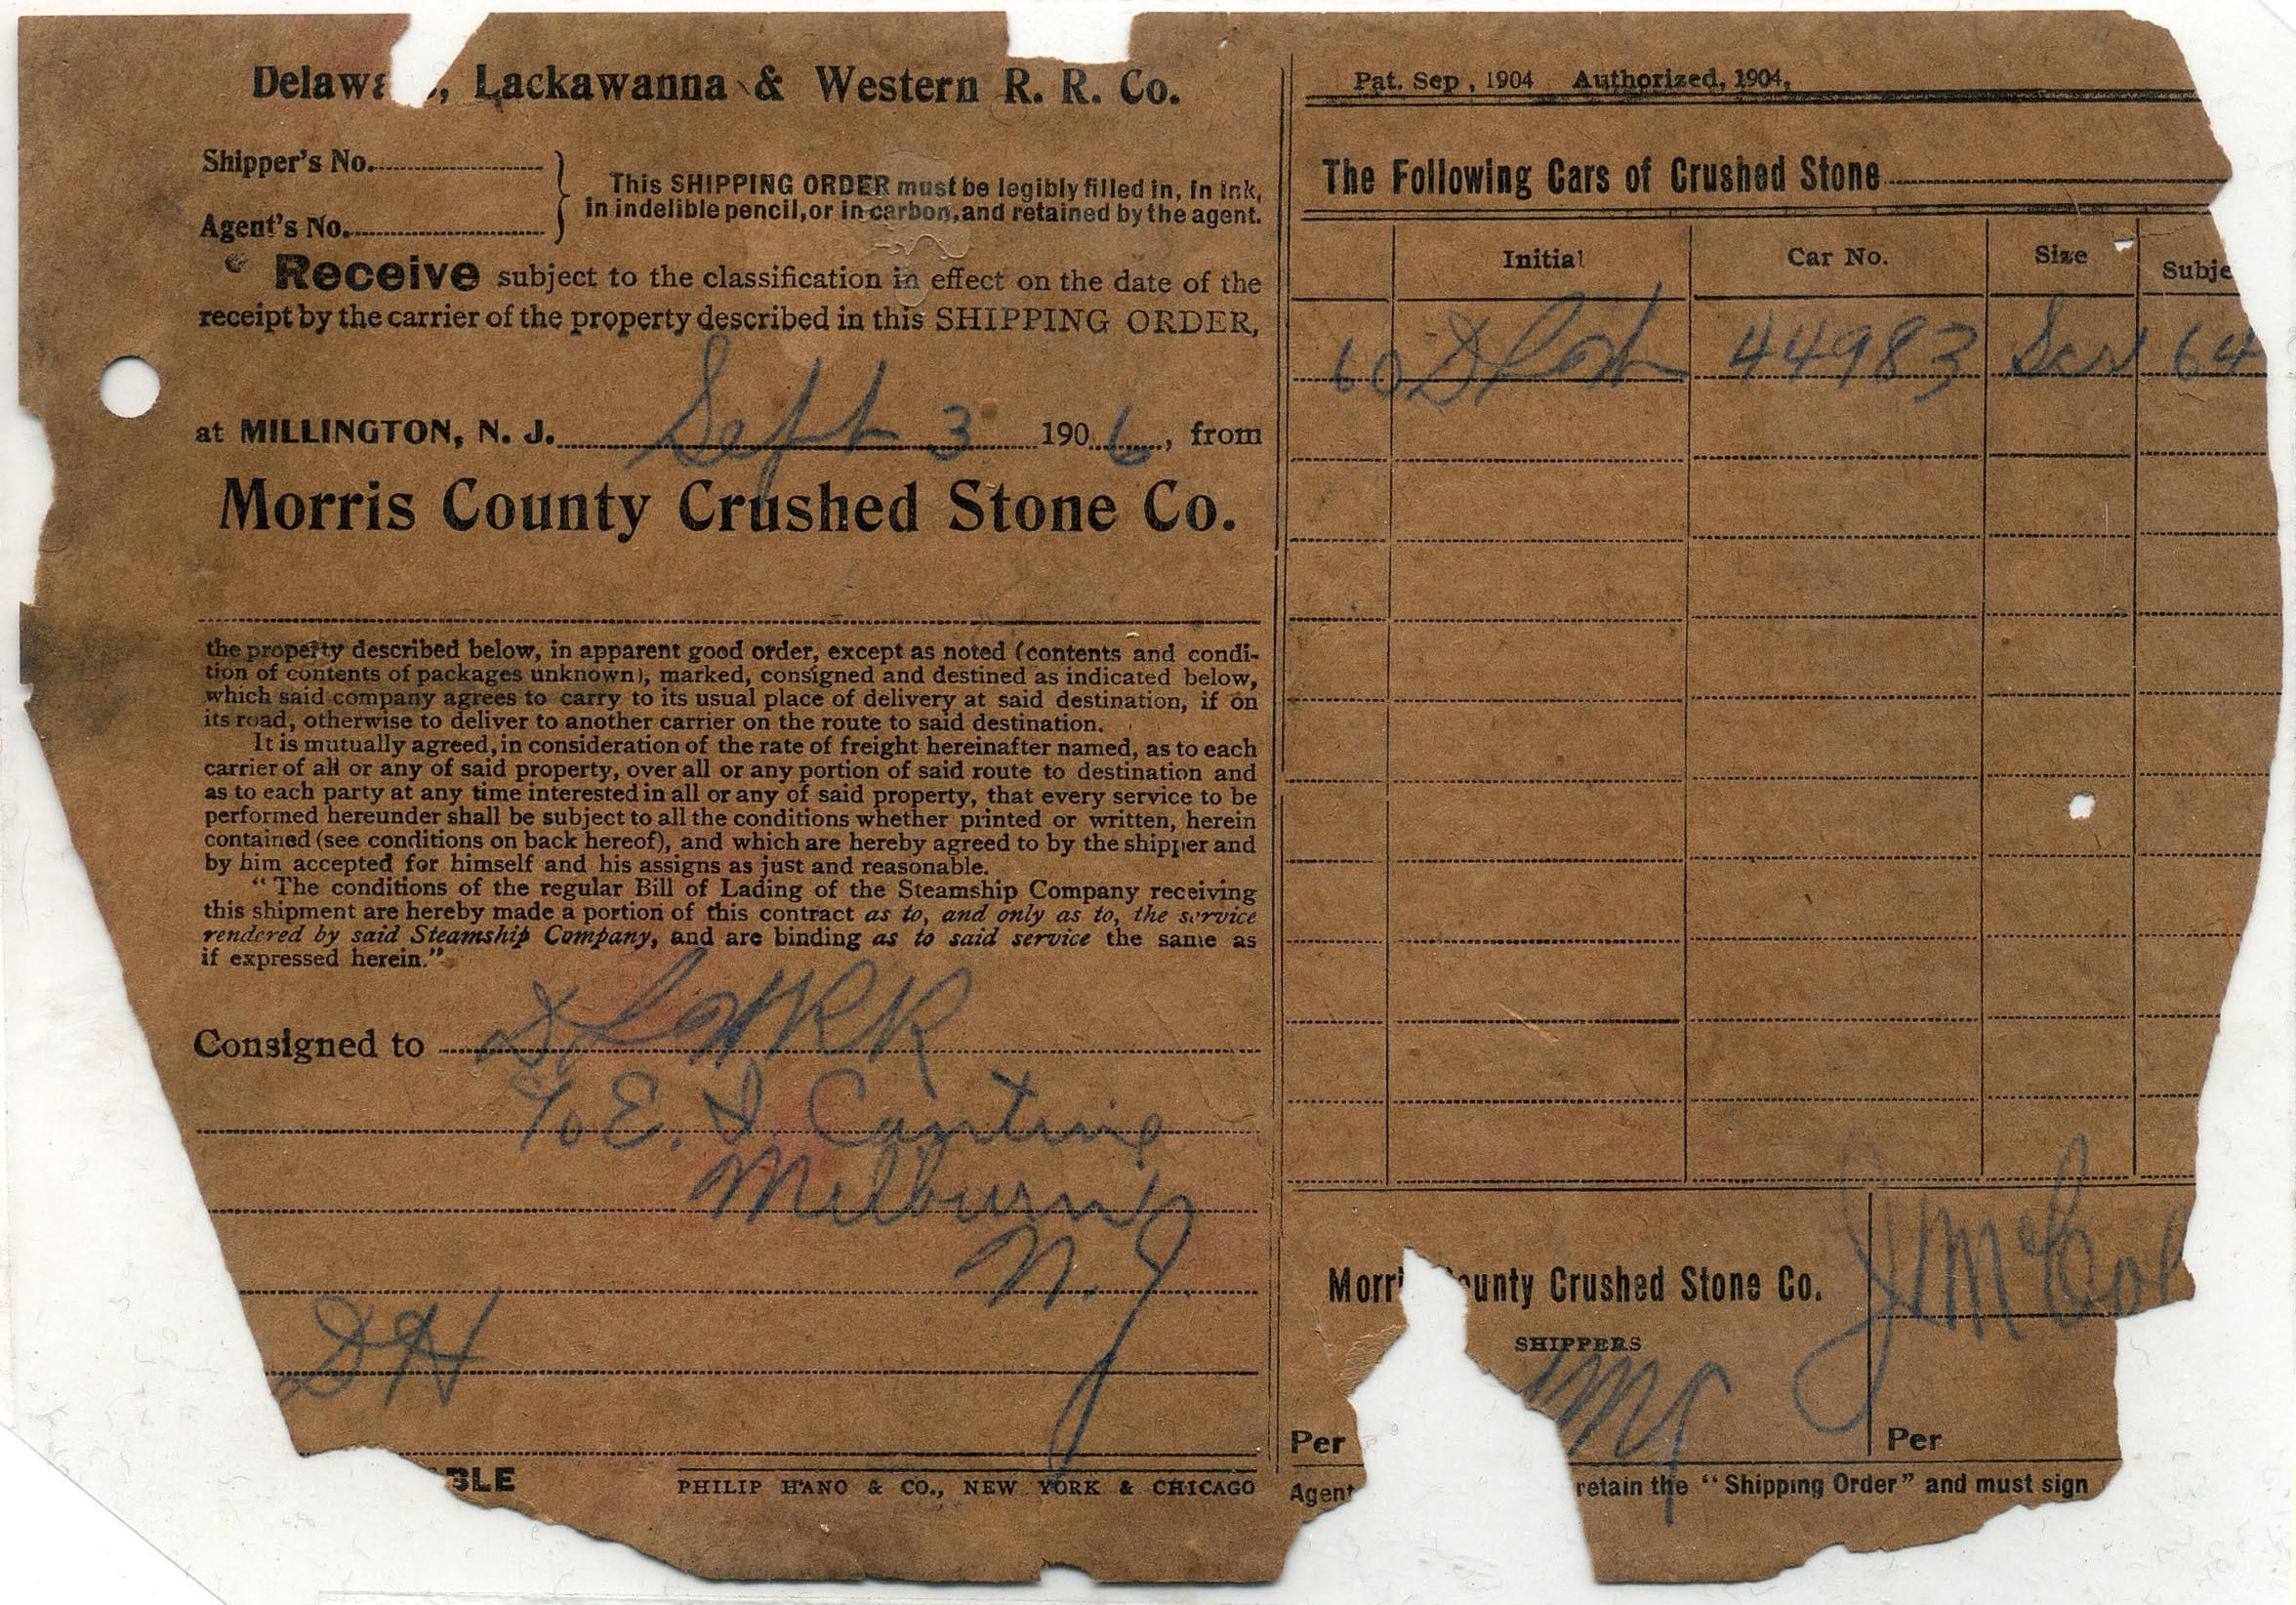 Delawa , Lackawanna & Western R. R. Co.
Shipper's No.
Agent's No.
This SHIPPING ORDER must be legibly filled in, in ink,
in indelible pencil, or in carbon, and retained by the agent.
Receive subject to the classification in effect on the date of the
receipt by the carrier of the property described in this SHIPPING ORDER,
at MILLINGTON, N. J. Sept 3 1906, from
Morris County Crushed Stone Co.
the property described below, in apparent good order, except as noted (contents and condi-
tion of contents of packages unknown), marked, consigned and destined as indicated below,
which said company agrees to carry to its usual place of delivery at said destination, if on
its road, otherwise to deliver to another carrier on the route to said destination.
It is mutually agreed, in consideration of the rate of freight hereinafter named, as to each
carrier of all or any of said property, over all or any portion of said route to destination and
as to each party at any time interested in all or any of said property, that every service to be
performed hereunder shall be subject to all the conditions whether printed or written, herein
contained (see conditions on back hereof), and which are hereby agreed to by the shipper and
by him accepted for himself and his assigns as just and reasonable.
"The conditions of the regular Bill of Lading of the Steamship Company receiving
this shipment are hereby made a portion of this contract as to, and only as to, the service
rendered by said Steamship Company, and are binding as to said service the same as
if expressed herein."
Consigned to DL&WRR
c/o E. I. Cantine
Milburn
N. J.
DH
BLE
PHILIP HANO & CO., NEW YORK & CHICAGO
Pat. Sep , 1904 Authorized, 1904,
The Following Cars of Crushed Stone
Initial Car No. Size Subje
60 DL&W 44983 Scr 64
Morri ounty Crushed Stone Co.
SHIPPERS
Per
Per
Agent retain the "Shipping Order" and must sign